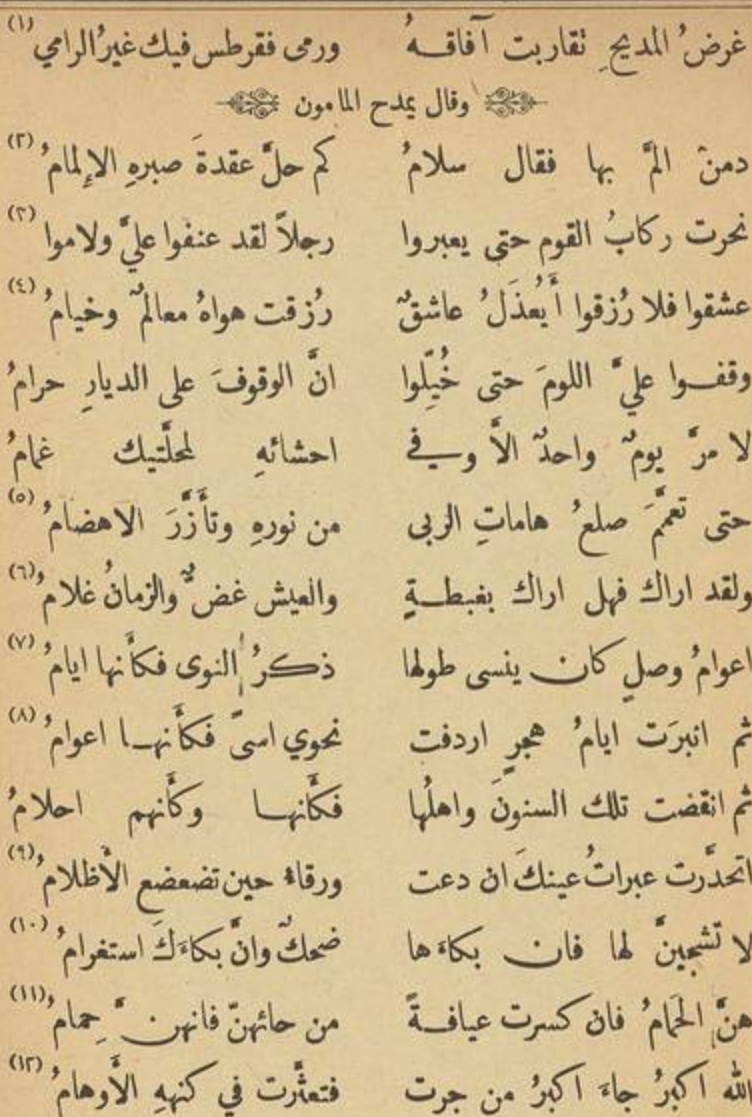 غرضُ المديحِ تقاربت آفاقـهُ ورمى فقرطس فيك غيرُ الرامي (١)
وقال يمدح المامون
دمنٌ المَّ بها فقال سلامُ كم حلَّ عقدةَ صبرهِ الإلمامُ (٢)
نحرت ركابُ القوم حتى يعبروا رجلاً لقد عنفوا عليَّ ولاموا (٣)
عشقوا فلا رُزقوا أَيُعذَلُ عاشقٌ رُزقت هواهُ معالمٌ وخيامُ (٤)
وقفـوا عليَّ اللومَ حتى خُيِّلوا انَّ الوقوفَ على الديارِ حرامُ
لا مرَّ يومٌ واحدٌ الاَّ وفي احشائهِ لمحلَّتيك غمامُ
حتى تعمَّمَ صلعُ هاماتِ الربى من نورهِ وتأَزَّرَ الاهضامُ (٥)
ولقد اراك فهل اراك بغبطـةٍ والعيش غضٌّ والزمانُ غلامُ (٦)
اعوامُ وصلٍ كان ينسى طولها ذكرُ النوى فكأَنها ايامُ (٧)
ثم انبرَت ايامُ هجرٍ اردفت نحوي اسىً فكأَنهـا اعوامُ (٨)
ثم انقضت تلك السنونَ واهلُها فكأَنهـا وكأَنهم احلامُ
اتحدَّرت عبراتُ عينكَ ان دعت ورقاءُ حين تضعضع الأَظلامُ (٩)
لا تشجينَّ لها فان بكاءَها ضحكٌ وانَّ بكاءَكَ استغرامُ (١٠)
هنَّ الحَمامُ فان كسرت عيافـةً من حائهنّ فانهنَّ حِمامُ (١١)
الله اكبرُ جاءَ اكبرُ من جرت فتعثَّرت في كنههِ الأَوهامُ (١٢)